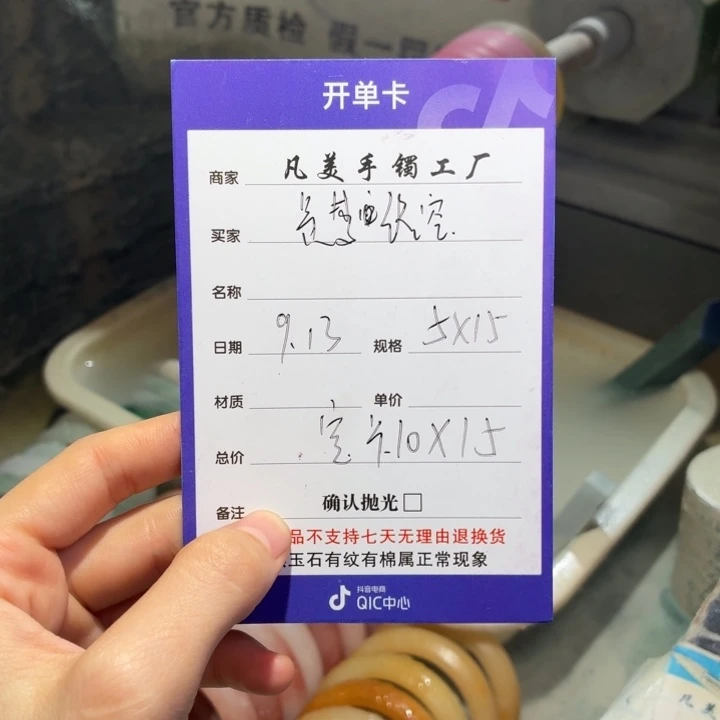 官方质检 假一
开单卡
商家 凡美手镯工厂
买家
名称
日期 9.13 规格 5X15
材质 单价
总价 10X15
备注 确认抛光□
品不支持七天无理由退换货
玉石有纹有棉属正常现象
抖音电商
QIC中心
凡美